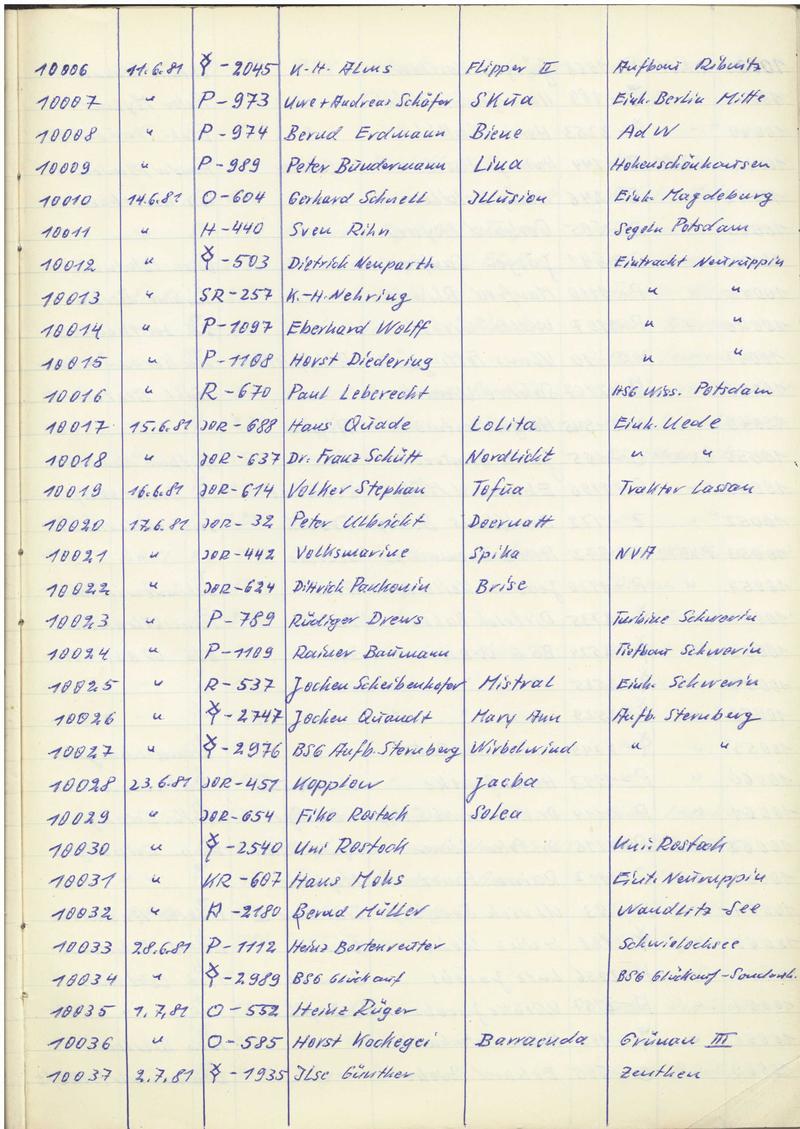 10006 11.6.81 -2045 K-H. Alms Flipper II Aufbau Ribnitz
10007 " P-973 Uwe+Andreas Schäfer Skua Einh. Berlin Mitte
10008 " P-974 Bernd Erdmann Biene AdW
10009 " P-989 Peter Bundermann Lina Hohenschönhausen
10010 14.6.81 O-604 Gerhard Schnell Illusion Einh. Magdeburg
10011 " H-440 Sven Rihn Segeln Potsdam
10012 " -503 Dietrich Neuparth Eintracht Neuruppin
10013 " SR-257 K.-H. Nehring " "
10014 " P-1097 Eberhard Wolff " "
10015 " P-1108 Horst Diedering " "
10016 " R-670 Paul Leberecht HSG Wiss. Potsdam
10017 15.6.81 JOR-688 Hans Quade Lolita Einh. Uede
10018 " JOR-637 Dr. Franz Schütt Nordlicht " "
10019 16.6.81 JOR-614 Volker Stephan Tofua Traktor Lassan
10020 17.6.81 JOR-32 Peter Ulbricht
10021 " JOR-442 Volksmarine Spika NVA
10022 " JOR-624 Dittrich Brise
10023 " P-789 Rüdiger Drews Turbine Schwerin
10024 " P-1109 Rainer Baumann Tiefbau Schwerin
10025 " R-537 Jochen Scheibenhofer Mistral Einh. Schwerin
10026 " -2747 Jochen Quandt Mary Ann Aufb. Sternberg
10027 " -2976 BSG Aufb. Sternberg Wirbelwind " "
10028 23.6.81 JOR-451 Kopplow Jacba
10029 " JOR-654 Fiko Rostock Solea
10030 " -2540 Uni Rostock Uni. Rostock
10031 " KR-607 Hans Mohs Eint. Neuruppin
10032 " -2180 Bernd Müller Wandlitz-See
10033 28.6.81 P-1112 Heinz Bartenreuter Schwielochsee
10034 " -2989 BSG Glückauf BSG Glückauf-Sondersh.
10035 1.7.81 O-552 Heinz Rüger
10036 " O-585 Horst Kochegei Barracuda Grünau III
10037 2.7.81 -1935 Ilse Günther Zeuthen